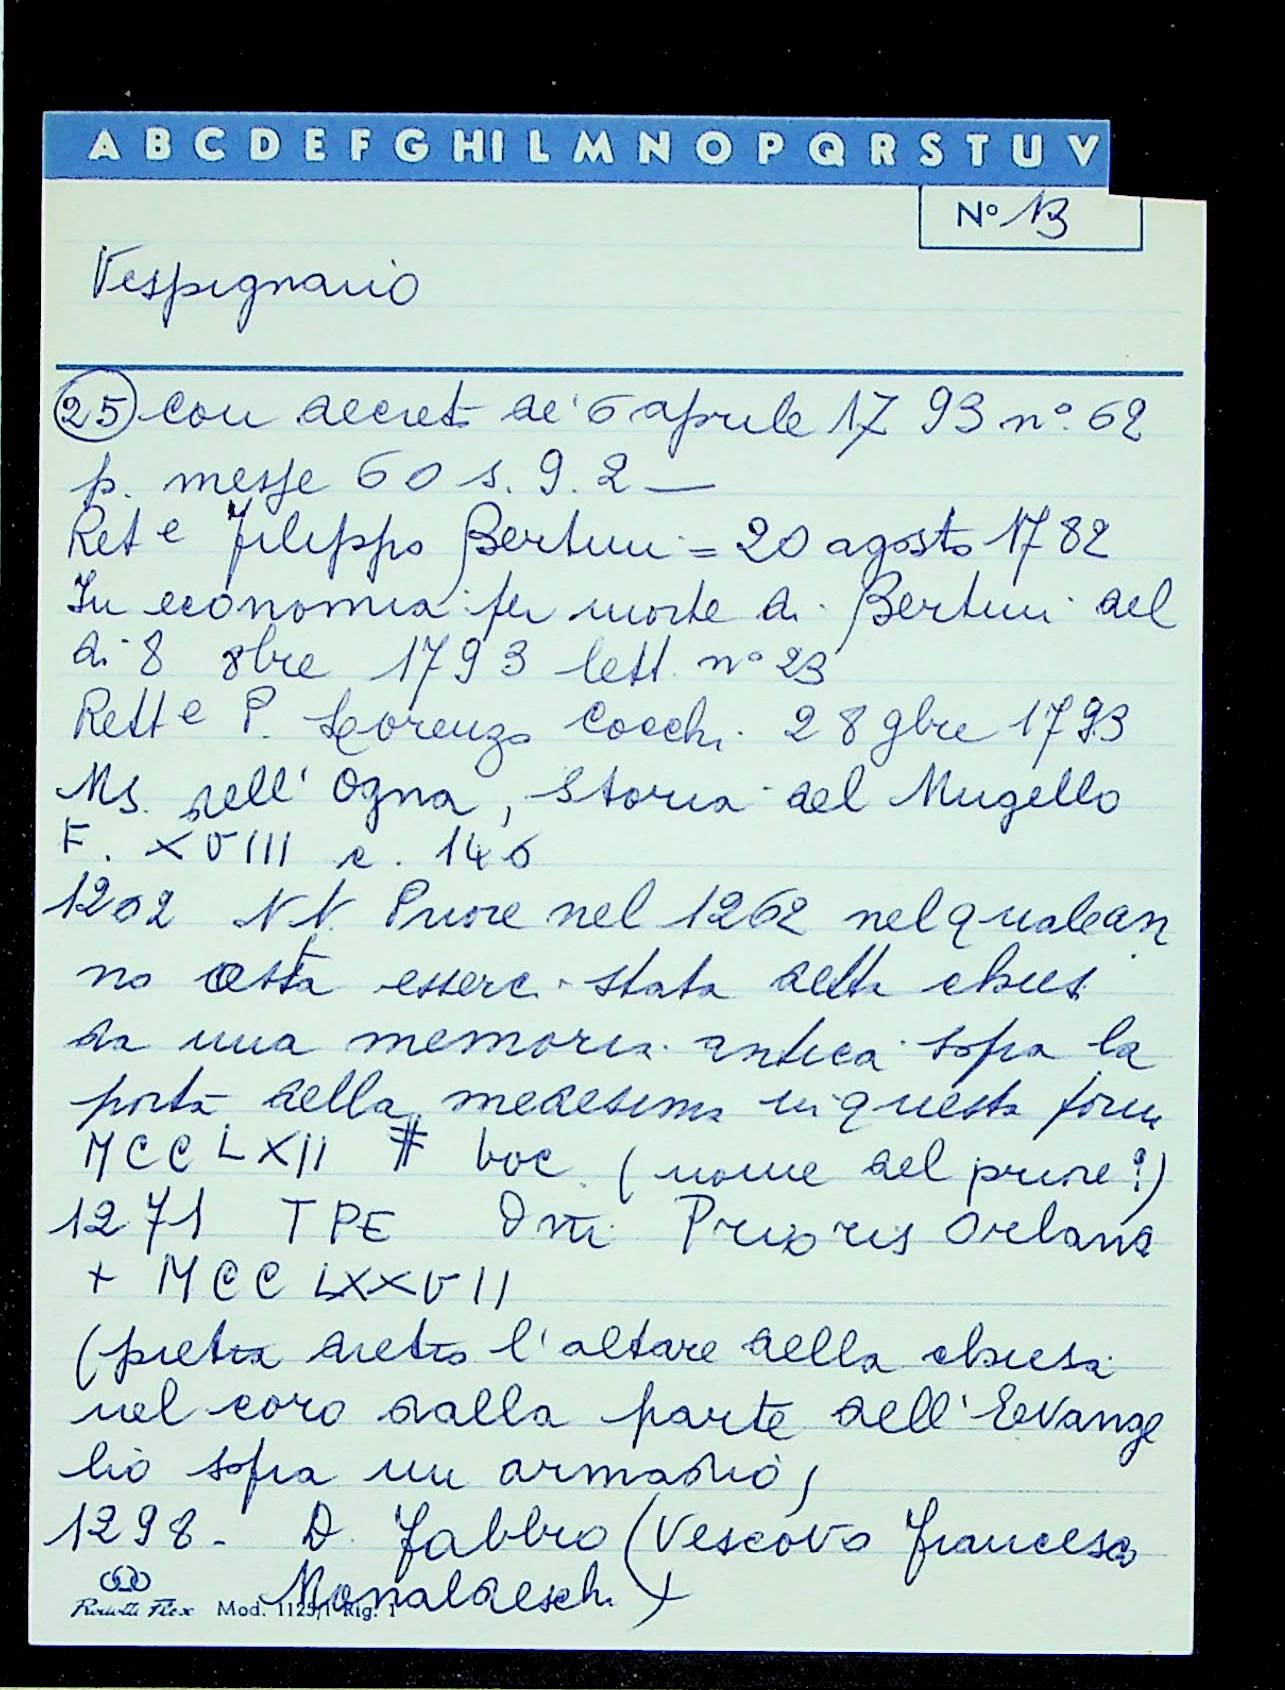 A B C D E F G H I L M N O P Q R S T U V
N° 13
Vespignano
25 con decreto de' 6 aprile 1793 n°. 62
p. messe 60 s. 9. 2 —
Ret e Filippo Bertini = 20 agosto 1782
In economia per morte di Bertini del
di 8 8bre 1793 lett. n° 23
Rett e P. Lorenzo Cocchi 28 9bre 1793
Ms. dell' Ogna, Storia del Mugello
F. XVIII c. 146
1202 N N. Priore nel 1262 nel quale an
no costa essere stata detta chies
da una memoria antica sopra la
porta della medesima in questa form
MCCLXII # voc (nome del priore?)
1271 TPE Dni Prioris Orland
+ MCCLXXVII
(pietra dietro l'altare della chiesa
nel coro dalla parte dell'Evange
lio sopra un armadio)
1298. D. Fabbro (Vescovo Francesco
Monaldeschi +
Mod. 1125/1 Rig. 1